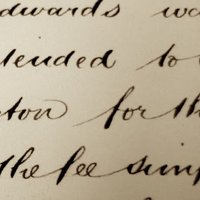 dwards wa
tended to
ton for th
the fee simp